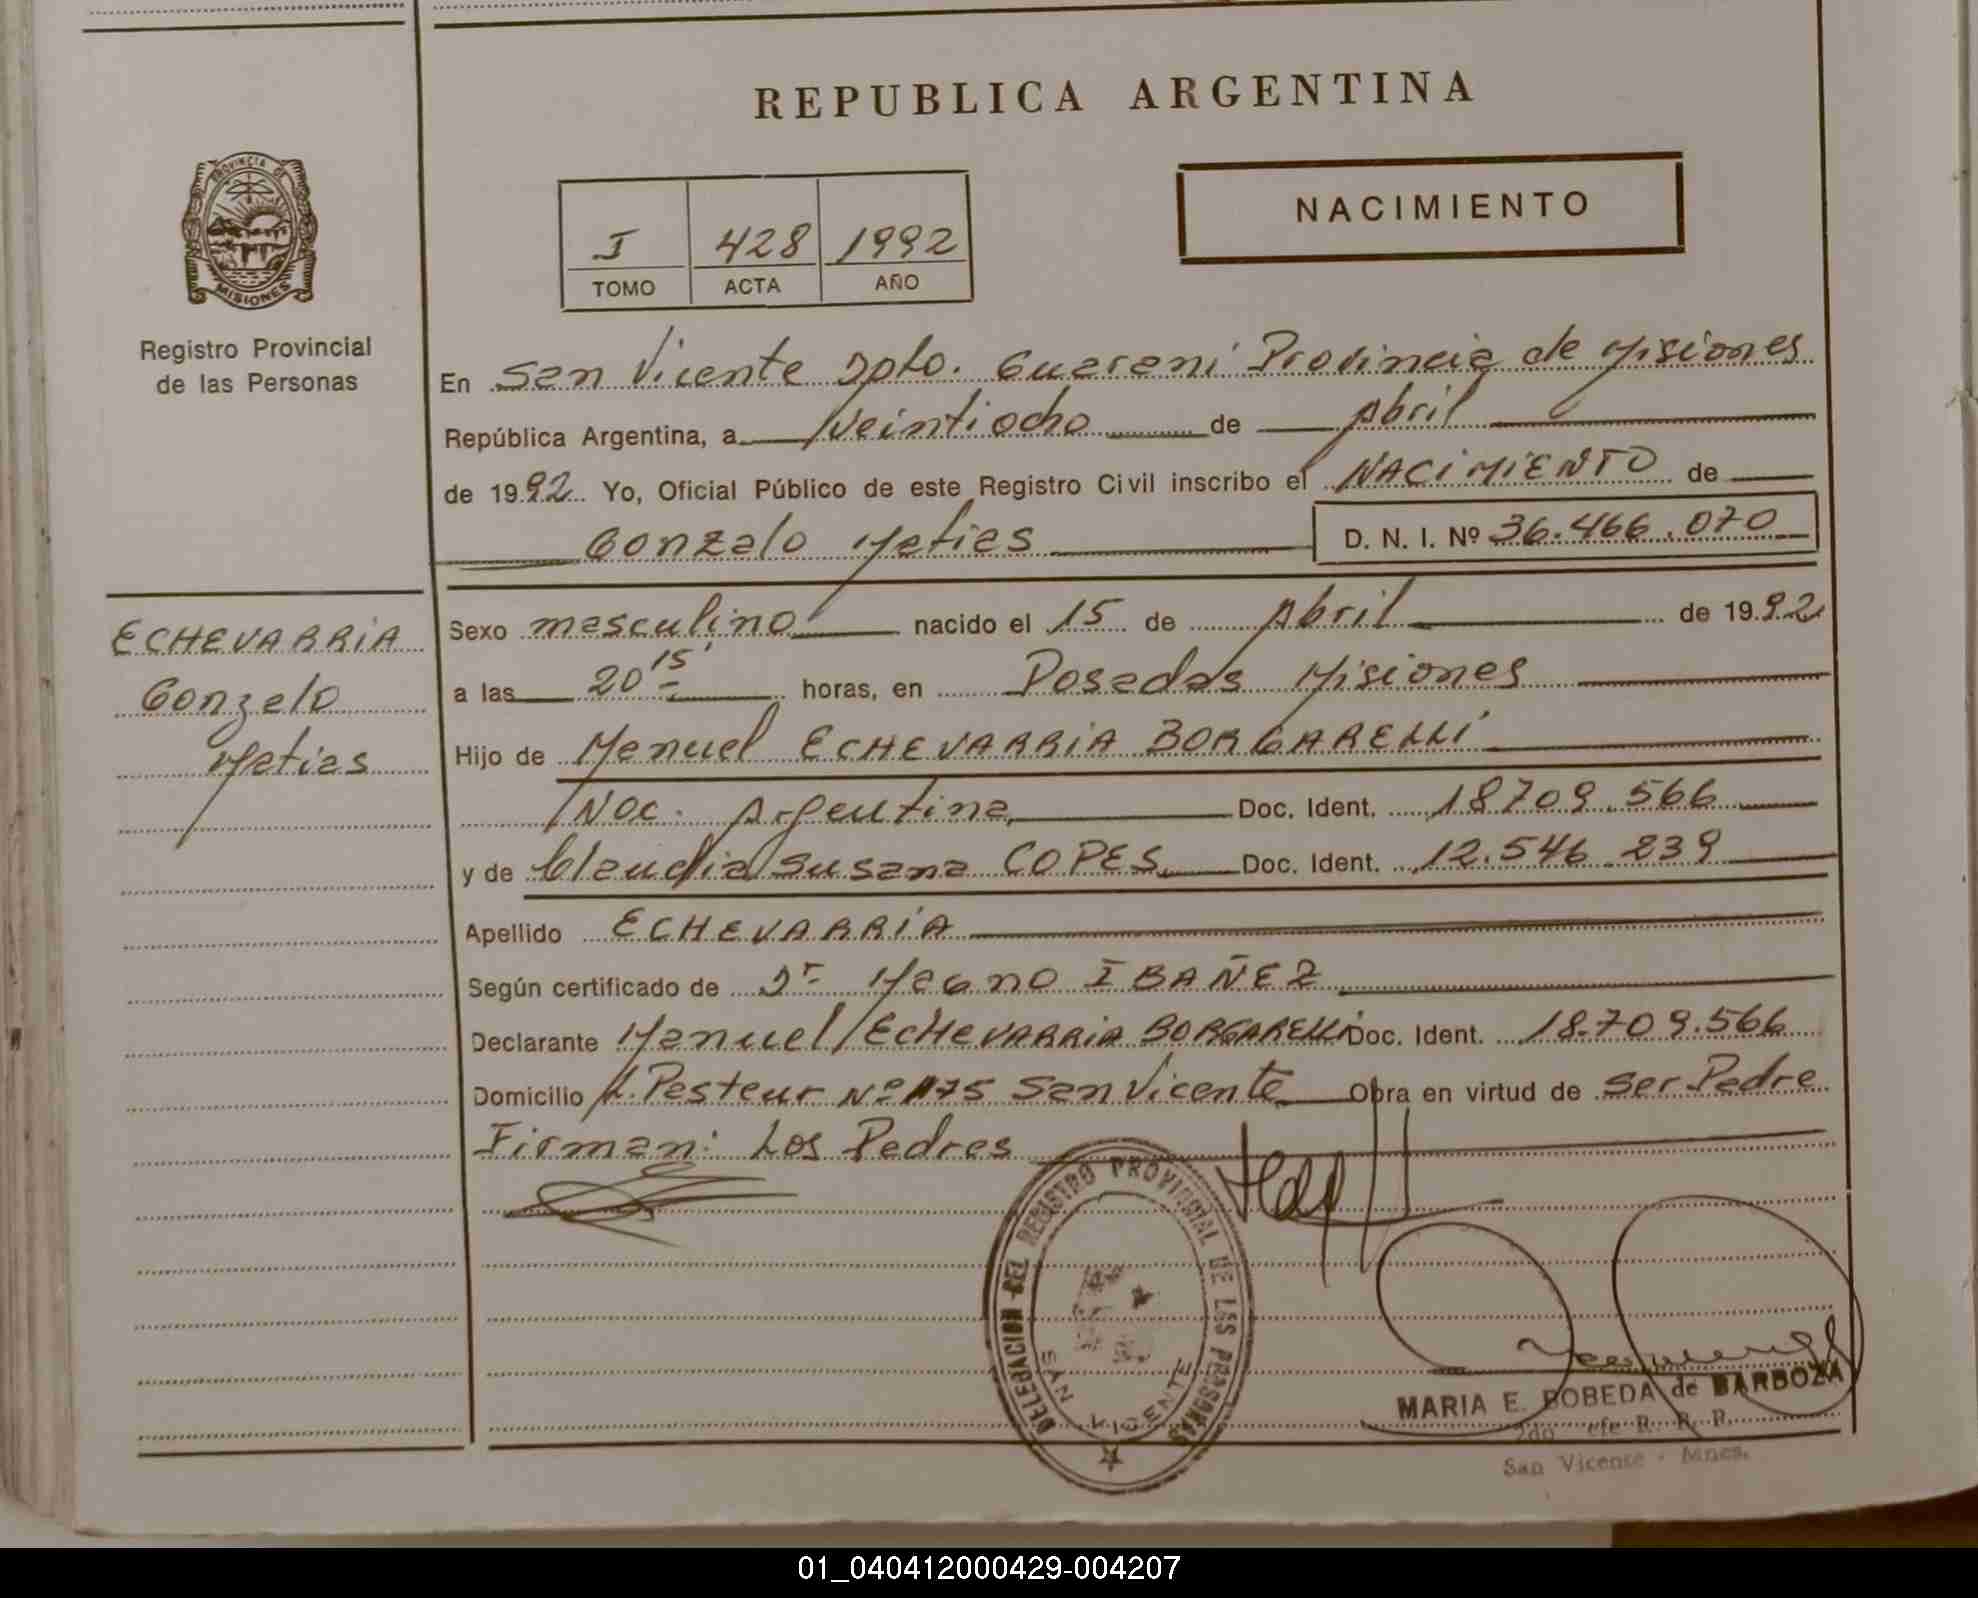 REPUBLICA ARGENTINA
PROVINCIA DE
MISIONES
Registro Provincial
de las Personas
NACIMIENTO
I 428 1992
TOMO ACTA AÑO
En San Vicente Dpto. Guarani Provincia de Misiones
República Argentina, a Veintiocho de Abril
de 1992 Yo, Oficial Público de este Registro Civil inscribo el NACIMIENTO de
Gonzalo Matias D. N. I. Nº 36.466.070
ECHEVARRIA
Gonzalo
Matias
Sexo masculino nacido el 15 de Abril de 1992
a las 20 15' horas, en Posadas Misiones
Hijo de Manuel ECHEVARRIA BORGARELLI
Nac. Argentina Doc. Ident. 18.709.566
y de Claudia Susana COPES Doc. Ident. 12.546.239
Apellido ECHEVARRIA
Según certificado de Dr Magno IBAÑEZ
Declarante Manuel ECHEVARRIA BORGARELLI Doc. Ident. 18.709.566
Domicilio L. Pasteur Nº 175 San Vicente Obra en virtud de ser Padre
Firman: Los Padres
DELEGACION DEL REGISTRO PROVINCIAL DE LAS PERSONAS
SAN VICENTE
MARIA E. BOBEDA de BARBOZA
2do Jefe R. P. P.
San Vicente - Mnes.
01_040412000429-004207